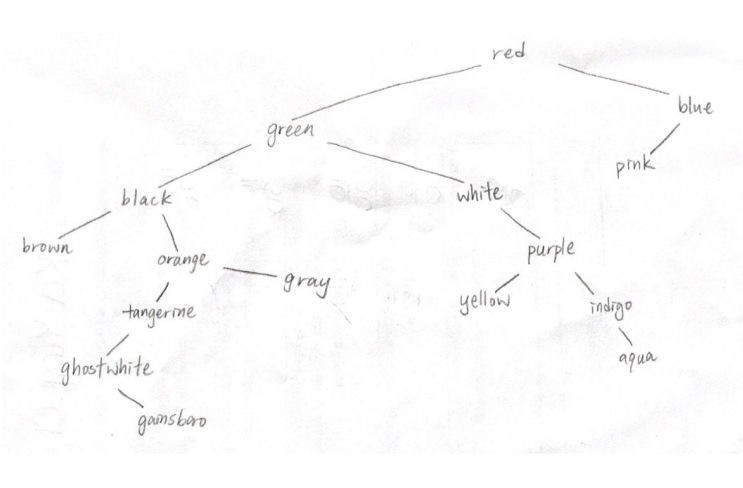 red
blue
green
pink
black
white
brown
orange
purple
gray
tangerine
yellow
indigo
ghostwhite
aqua
gainsboro